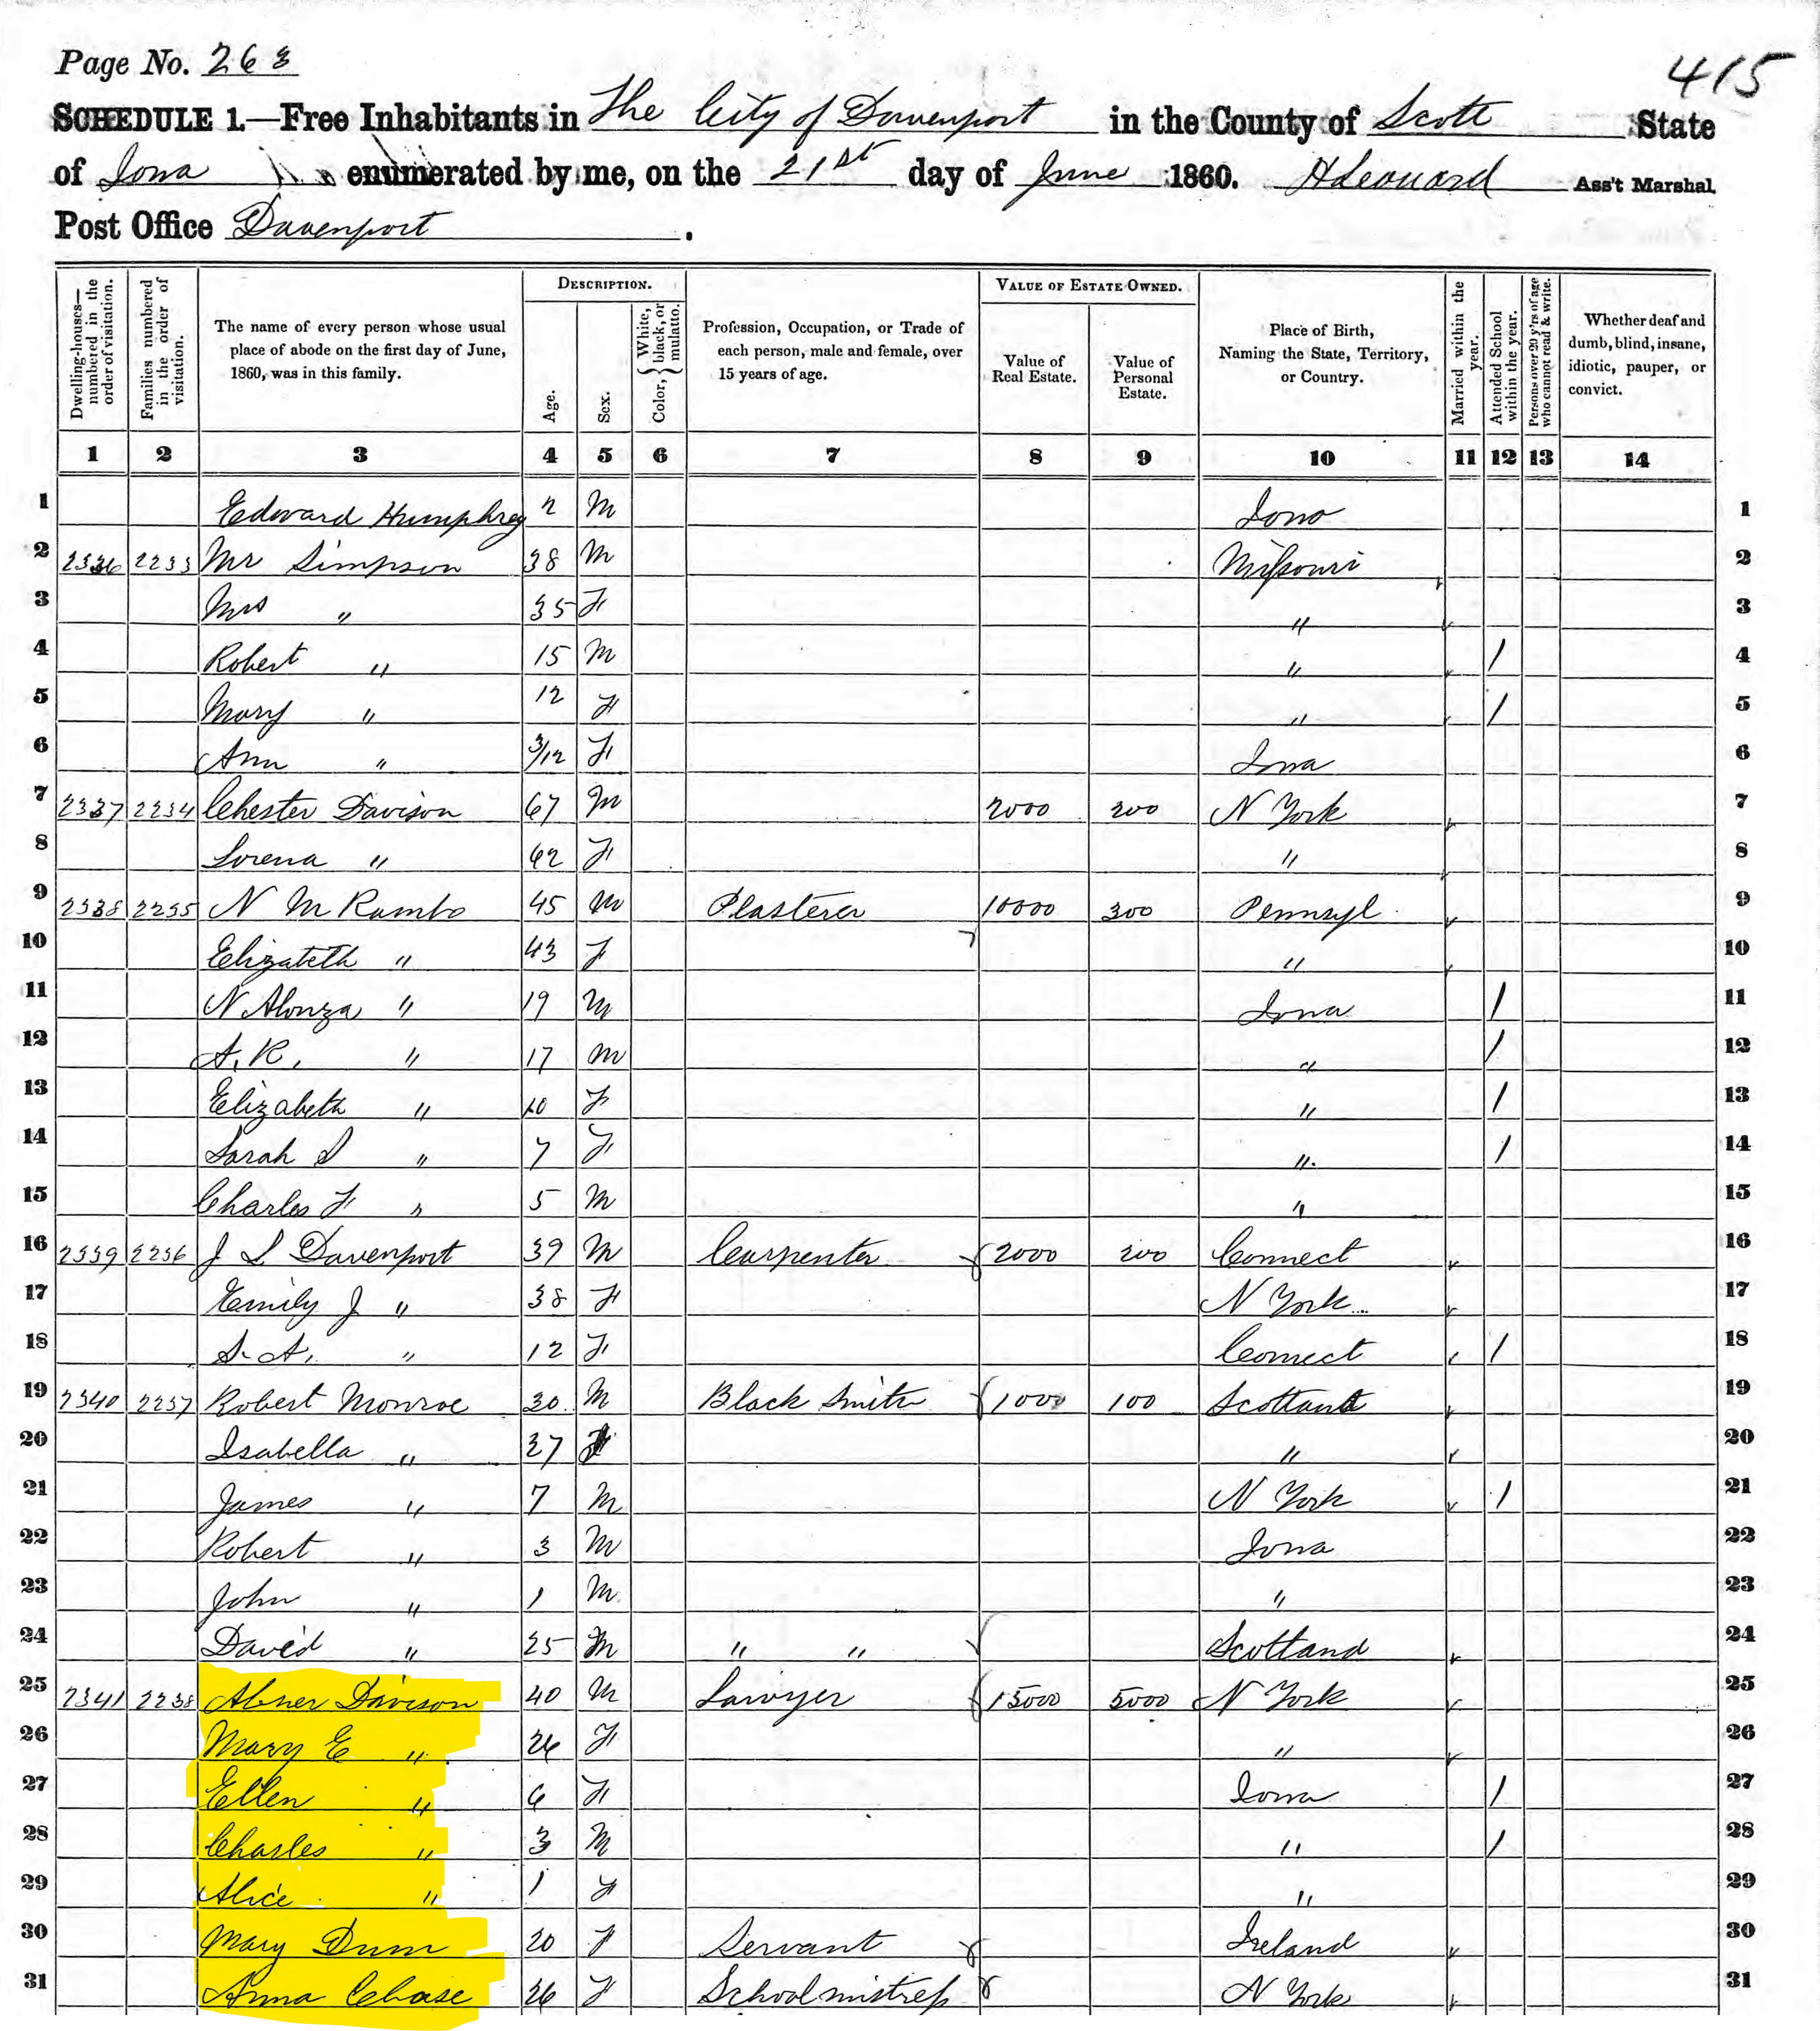 Page No. 263
415
SCHEDULE 1.—Free Inhabitants in The City of Davenport in the County of Scott State
of Iowa enumerated by me, on the 21st day of June 1860. H Leonard Ass't Marshal.
Post Office Davenport .
Dwelling-houses—numbered in the order of visitation.
Families numbered in the order of visitation.
The name of every person whose usual place of abode on the first day of June, 1860, was in this family.
DESCRIPTION.
Age.
Sex.
Color, { White, black, or mulatto.
Profession, Occupation, or Trade of each person, male and female, over 15 years of age.
VALUE OF ESTATE OWNED.
Value of Real Estate.
Value of Personal Estate.
Place of Birth, Naming the State, Territory, or Country.
Married within the year.
Attended School within the year.
Persons over 20 y'rs of age who cannot read & write.
Whether deaf and dumb, blind, insane, idiotic, pauper, or convict.
1 2 3 4 5 6 7 8 9 10 11 12 13 14
1 Edward Humphrey 2 M Iowa 1
2 2336 2233 Mr Simpson 38 M Missouri 2
3 Mrs " 35 F " 3
4 Robert " 15 M " / 4
5 Mary " 12 F " / 5
6 Ann " 3/12 F Iowa 6
7 2337 2234 Chester Davison 67 M 2000 200 N York 7
8 Lorena " 62 F " 8
9 2338 2235 N M Rambo 45 M Plasterer 10000 300 Pennsyl 9
10 Elizateth " 43 F " 10
11 N Alonza " 19 M Iowa / 11
12 A. R. " 17 M " / 12
13 Elizabeth " 10 F " / 13
14 Sarah S " 7 F " / 14
15 Charles F " 5 M " 15
16 2339 2236 J S Davenport 39 M Carpenter 2000 200 Connect 16
17 Emily J " 38 F N York 17
18 S. A. " 12 F Connect / 18
19 2340 2237 Robert Monroe 30 M Black Smith 1000 100 Scotland 19
20 Isabella " 27 F " 20
21 James " 7 M N York / 21
22 Robert " 3 M Iowa 22
23 John " 1 M " 23
24 David " 25 M " " Scotland 24
25 2341 2238 Abner Davison 40 M Lawyer 15000 5000 N York 25
26 Mary E " 26 F " 26
27 Ellen " 6 F Iowa / 27
28 Charles " 3 M " / 28
29 Alice " 1 F " 29
30 Mary Dunn 20 F Servant Ireland 30
31 Anna Chase 26 F Schoolmistress N York 31